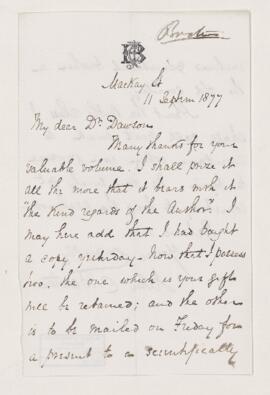 Mackay St
11 Septem 1877
My dear Dr Dawson
Many thanks for your
valuable volume. I shall prize it
all the more that it bears with it
"the kind regards of the Author". I
may here add that I had bought
a copy yesterday - Now that I possess
two. the one which is your gift
will be retained; and the other
is to be mailed on Friday for
a present to a scientifically